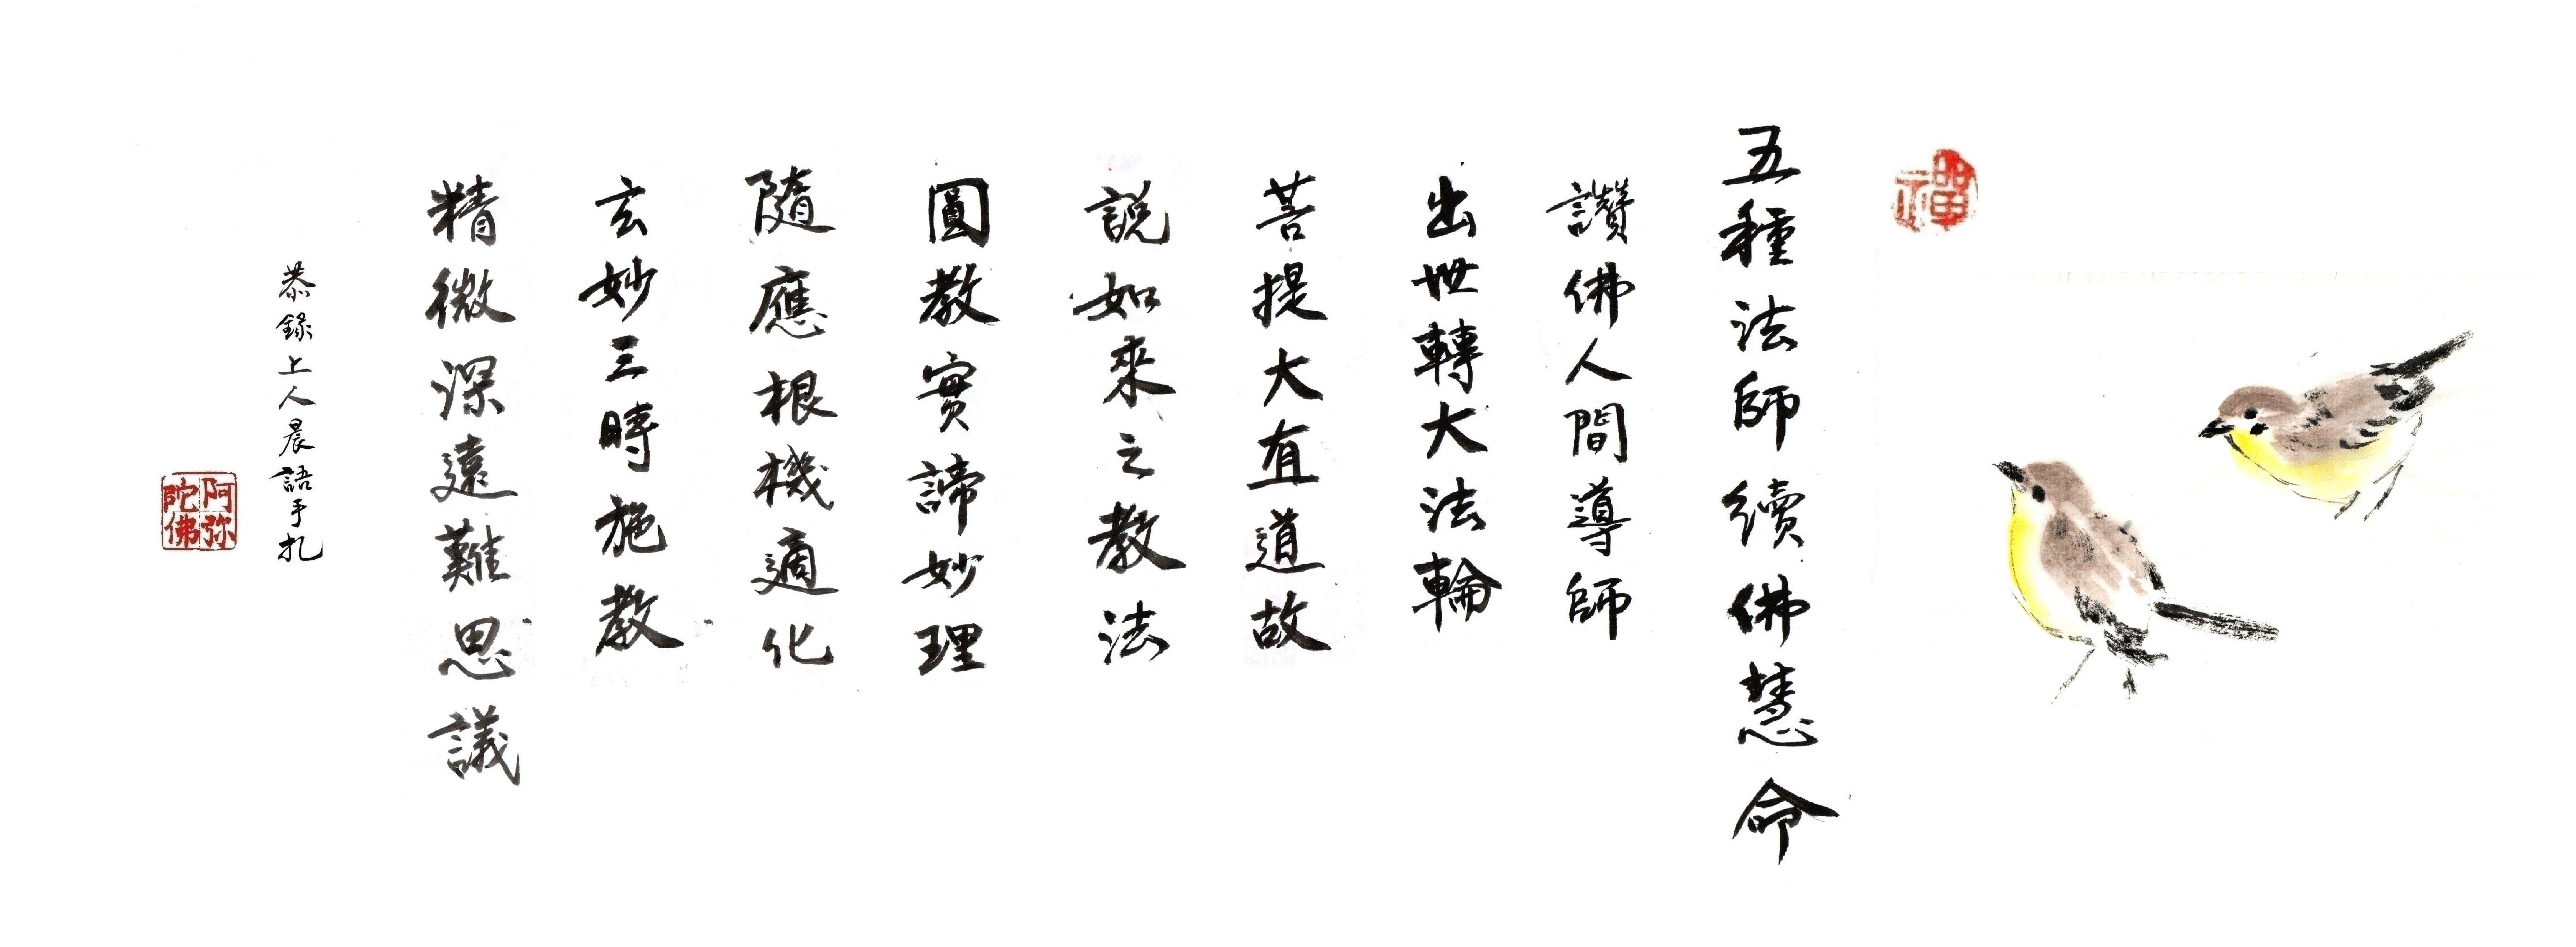 禪
五種法師續佛慧命
讚佛人間導師
出世轉大法輪
菩提大直道故
說如來之教法
圓教實諦妙理
隨應根機適化
玄妙三時施教
精微深遠難思議
恭錄上人晨語手扎
阿弥陀佛